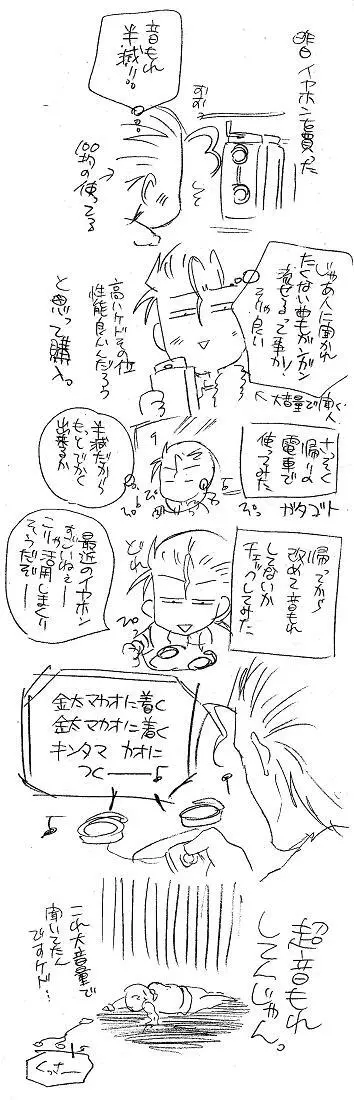 昨日イヤホンを買った
音もれ
半減!!
ずず
100均の使ってる
じゃあ人に聞かれ
たくない曲もガンガン
流せるって事か!
そりゃ良い
大音量で聞く人
高いケドその位
性能良いんだろう
と思って購入。
さっそく
帰りの
電車で
使ってみた
ガタゴト
半減だから
もっとでかく
出来るか
帰ってから
改めて音もれ
してないか
チェックしてみた
どれ
最近のイヤホン
すごいねぇー
こりゃ活用しまくり
そうだぞー
金太マカオに着く
金太マカオに着く
キンタマ カオに
つくーー
超音もれ
してんじゃん。
これ大音量で
聞いてたん
ですケド…
くっさー